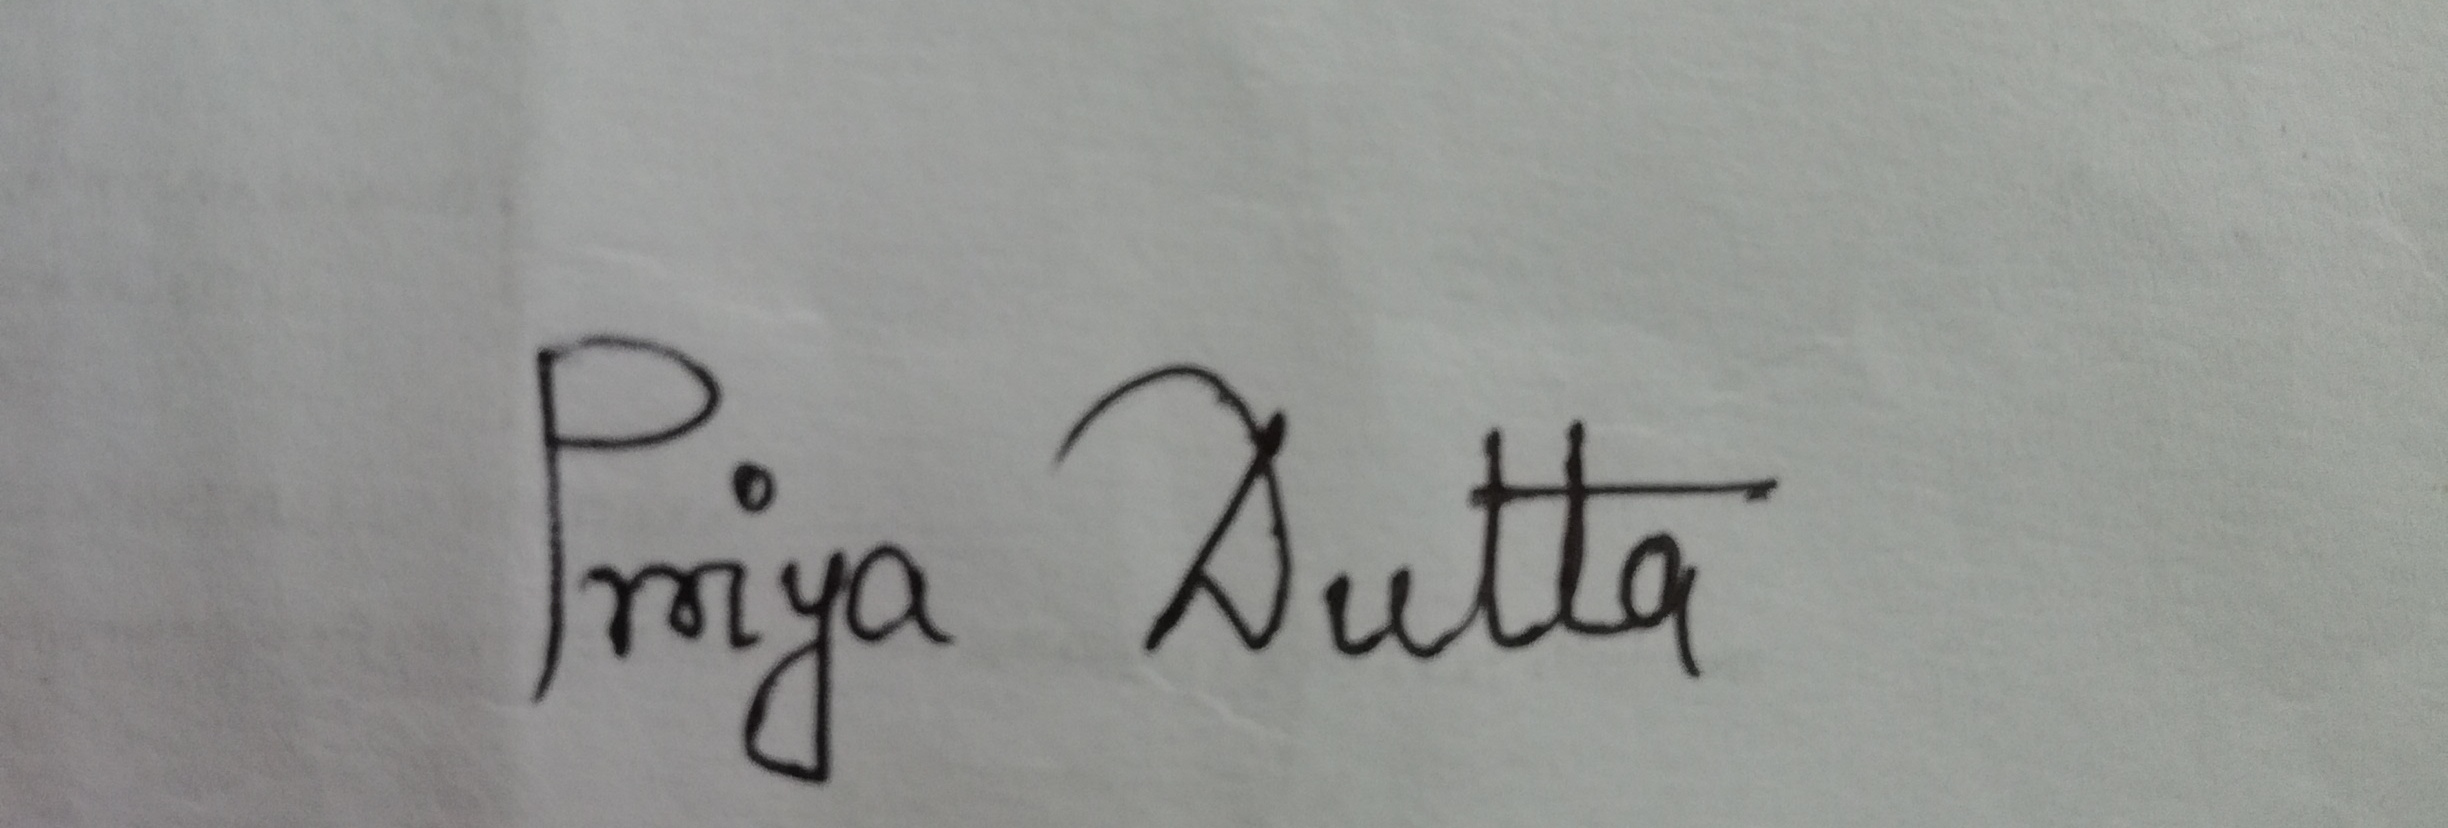 Priya Dutta